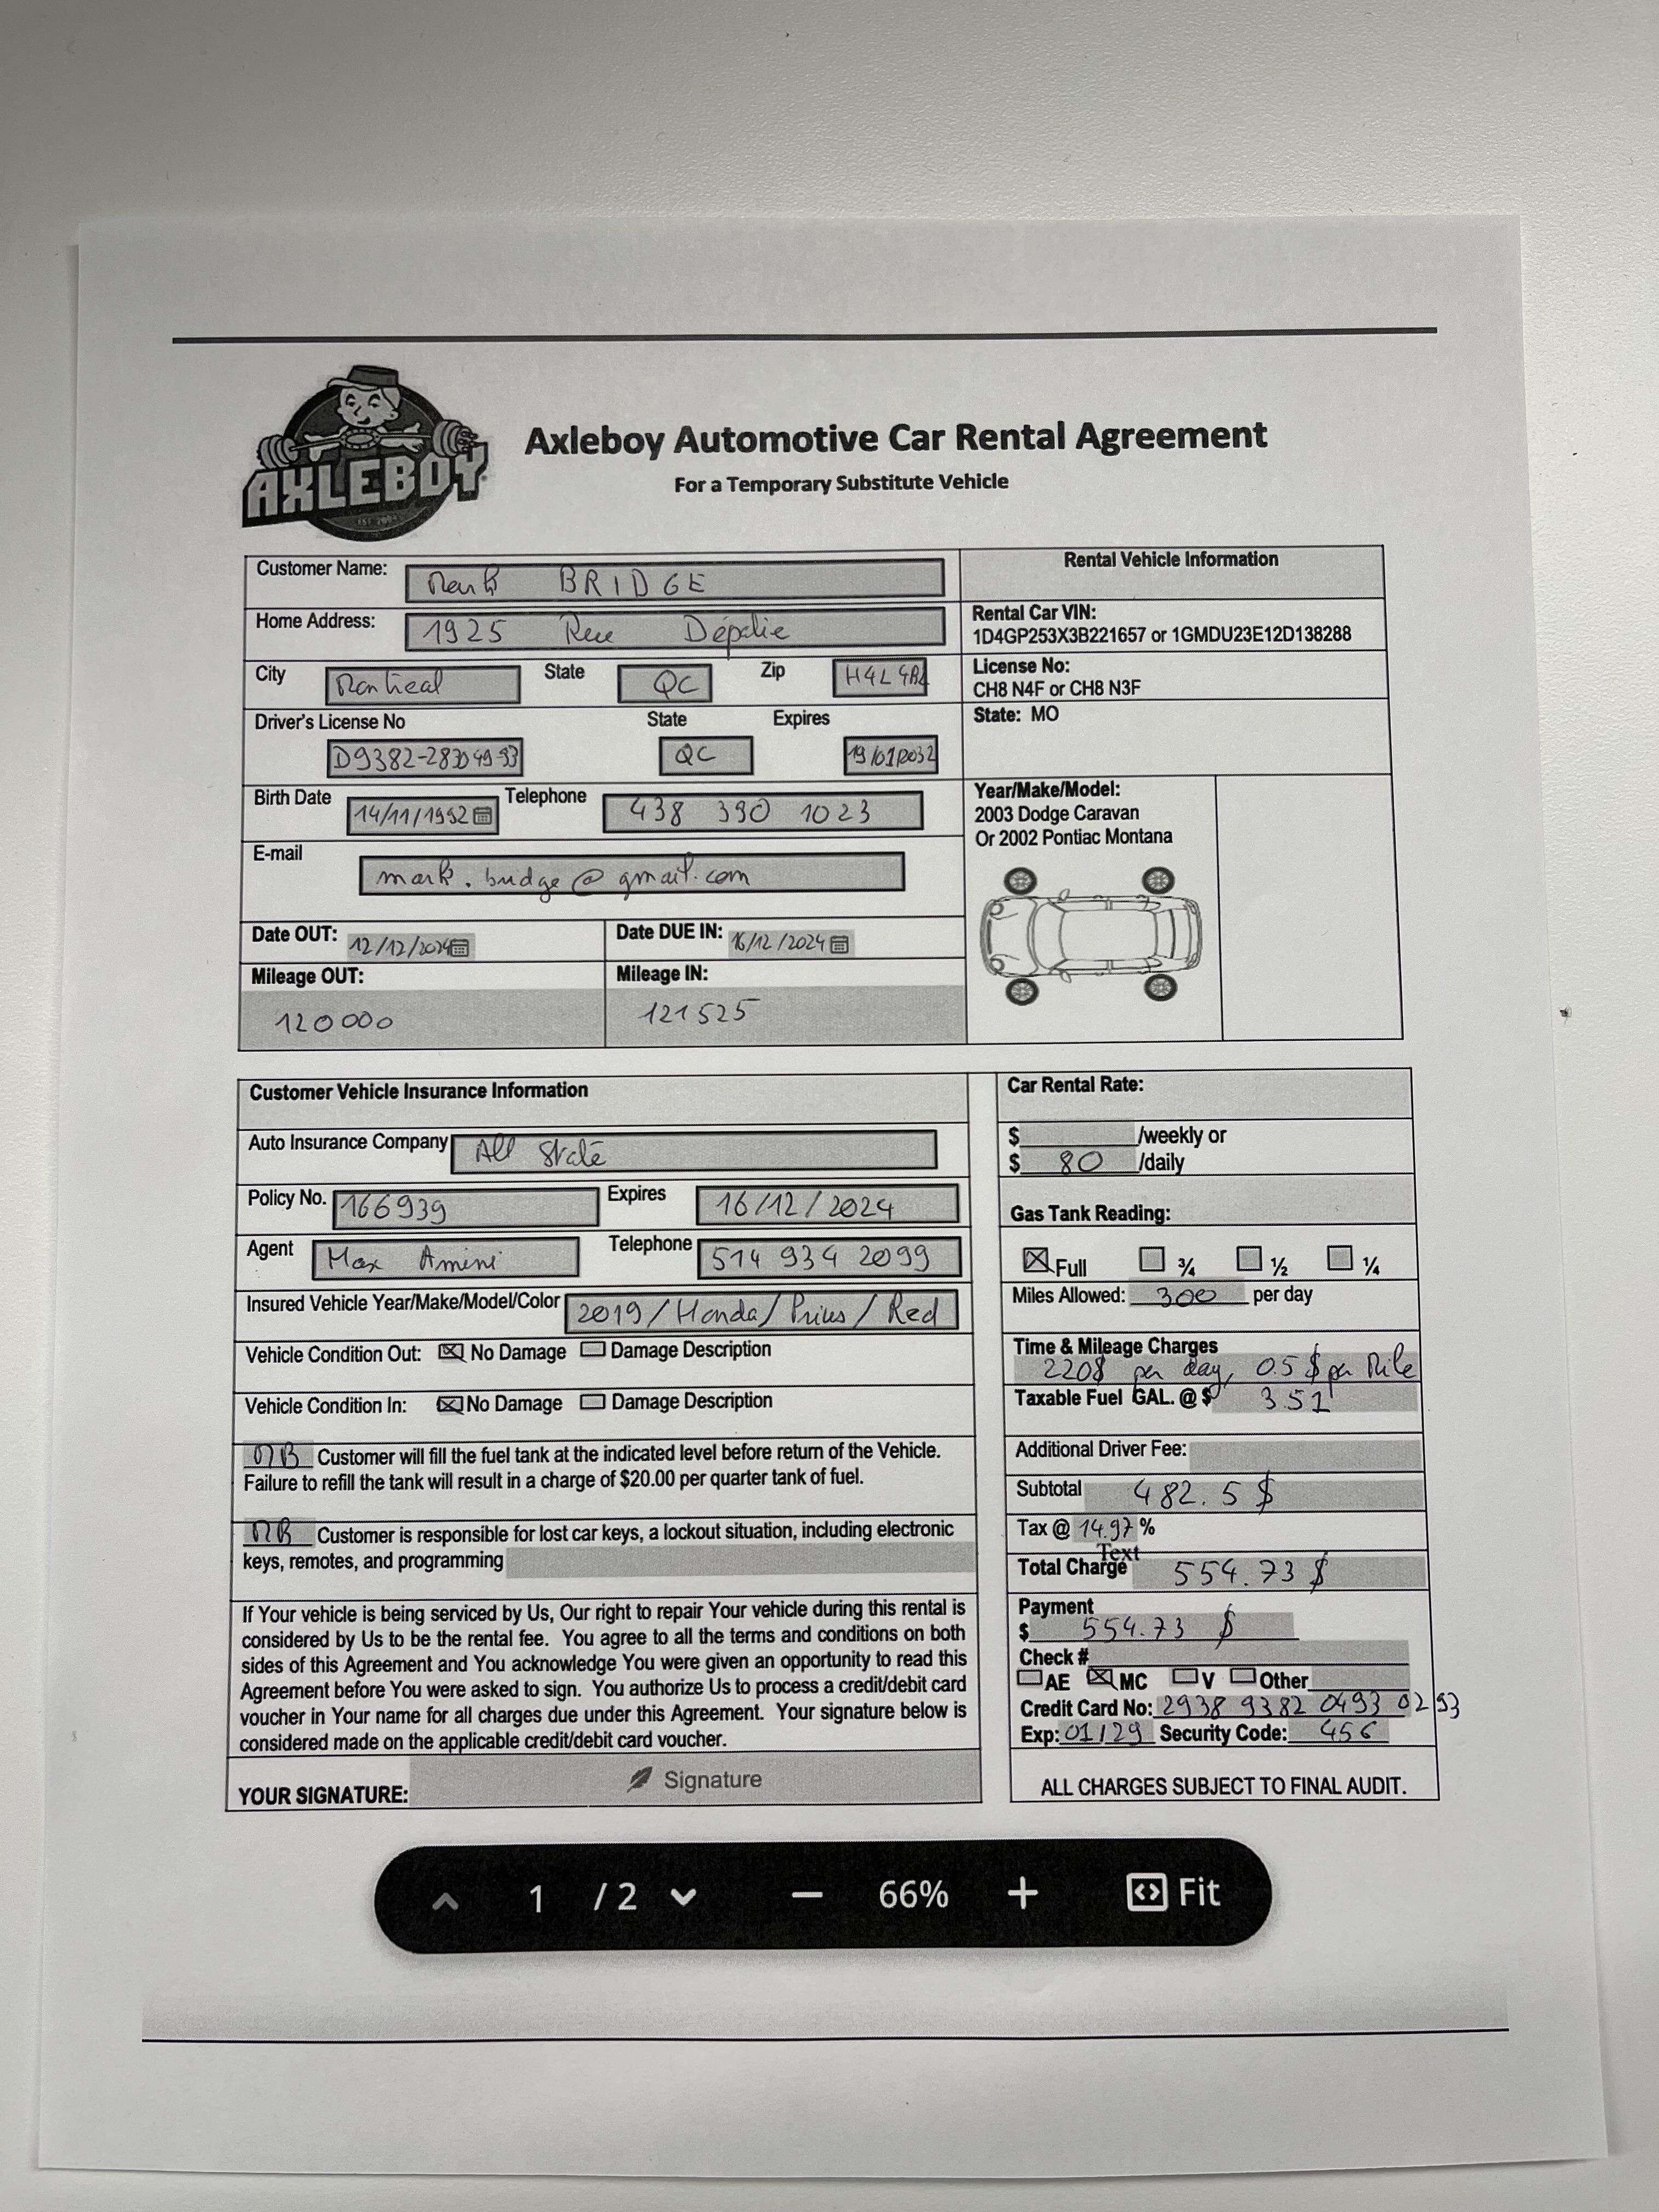 AXLEBOY
Axleboy Automotive Car Rental Agreement
For a Temporary Substitute Vehicle
Customer Name: Mark BRIDGE
Home Address: 1925 Rue Dépatie
City Montreal State QC Zip H4L
Driver's License No State Expires
D9382-283049-93 QC 19/01/2032
Birth Date 14/11/1992 Telephone 438 390 1023
E-mail mark.bridge@gmail.com
Date OUT: 12/12/2024 Date DUE IN: 16/12/2024
Mileage OUT: Mileage IN:
120000 121525
Rental Vehicle Information
Rental Car VIN:
1D4GP253X3B221657 or 1GMDU23E12D138288
License No:
CH8 N4F or CH8 N3F
State: MO
Year/Make/Model:
2003 Dodge Caravan
Or 2002 Pontiac Montana
Customer Vehicle Insurance Information
Auto Insurance Company All State
Policy No. 166939 Expires 16/12/2024
Agent Max Amini Telephone 514 934 2099
Insured Vehicle Year/Make/Model/Color 2019/Honda/Prius/Red
Vehicle Condition Out: ☒ No Damage ☐ Damage Description
Vehicle Condition In: ☒ No Damage ☐ Damage Description
MB Customer will fill the fuel tank at the indicated level before return of the Vehicle.
Failure to refill the tank will result in a charge of $20.00 per quarter tank of fuel.
MB Customer is responsible for lost car keys, a lockout situation, including electronic
keys, remotes, and programming
If Your vehicle is being serviced by Us, Our right to repair Your vehicle during this rental is
considered by Us to be the rental fee. You agree to all the terms and conditions on both
sides of this Agreement and You acknowledge You were given an opportunity to read this
Agreement before You were asked to sign. You authorize Us to process a credit/debit card
voucher in Your name for all charges due under this Agreement. Your signature below is
considered made on the applicable credit/debit card voucher.
YOUR SIGNATURE: Signature
Car Rental Rate:
$ /weekly or
$ 80 /daily
Gas Tank Reading:
☒ Full ☐ ¾ ☐ ½ ☐ ¼
Miles Allowed: 300 per day
Time & Mileage Charges
220$ per day, 0.5 $ per Mile
Taxable Fuel GAL. @ $ 3.51
Additional Driver Fee:
Subtotal 482.5 $
Tax @ 14.97 %
Text
Total Charge 554.73 $
Payment
$ 554.73 $
Check #
☐ AE ☒ MC ☐ V ☐ Other
Credit Card No: 2938 9382 0493 0293
Exp: 01/29 Security Code: 456
ALL CHARGES SUBJECT TO FINAL AUDIT.
1 / 2 − 66% + Fit